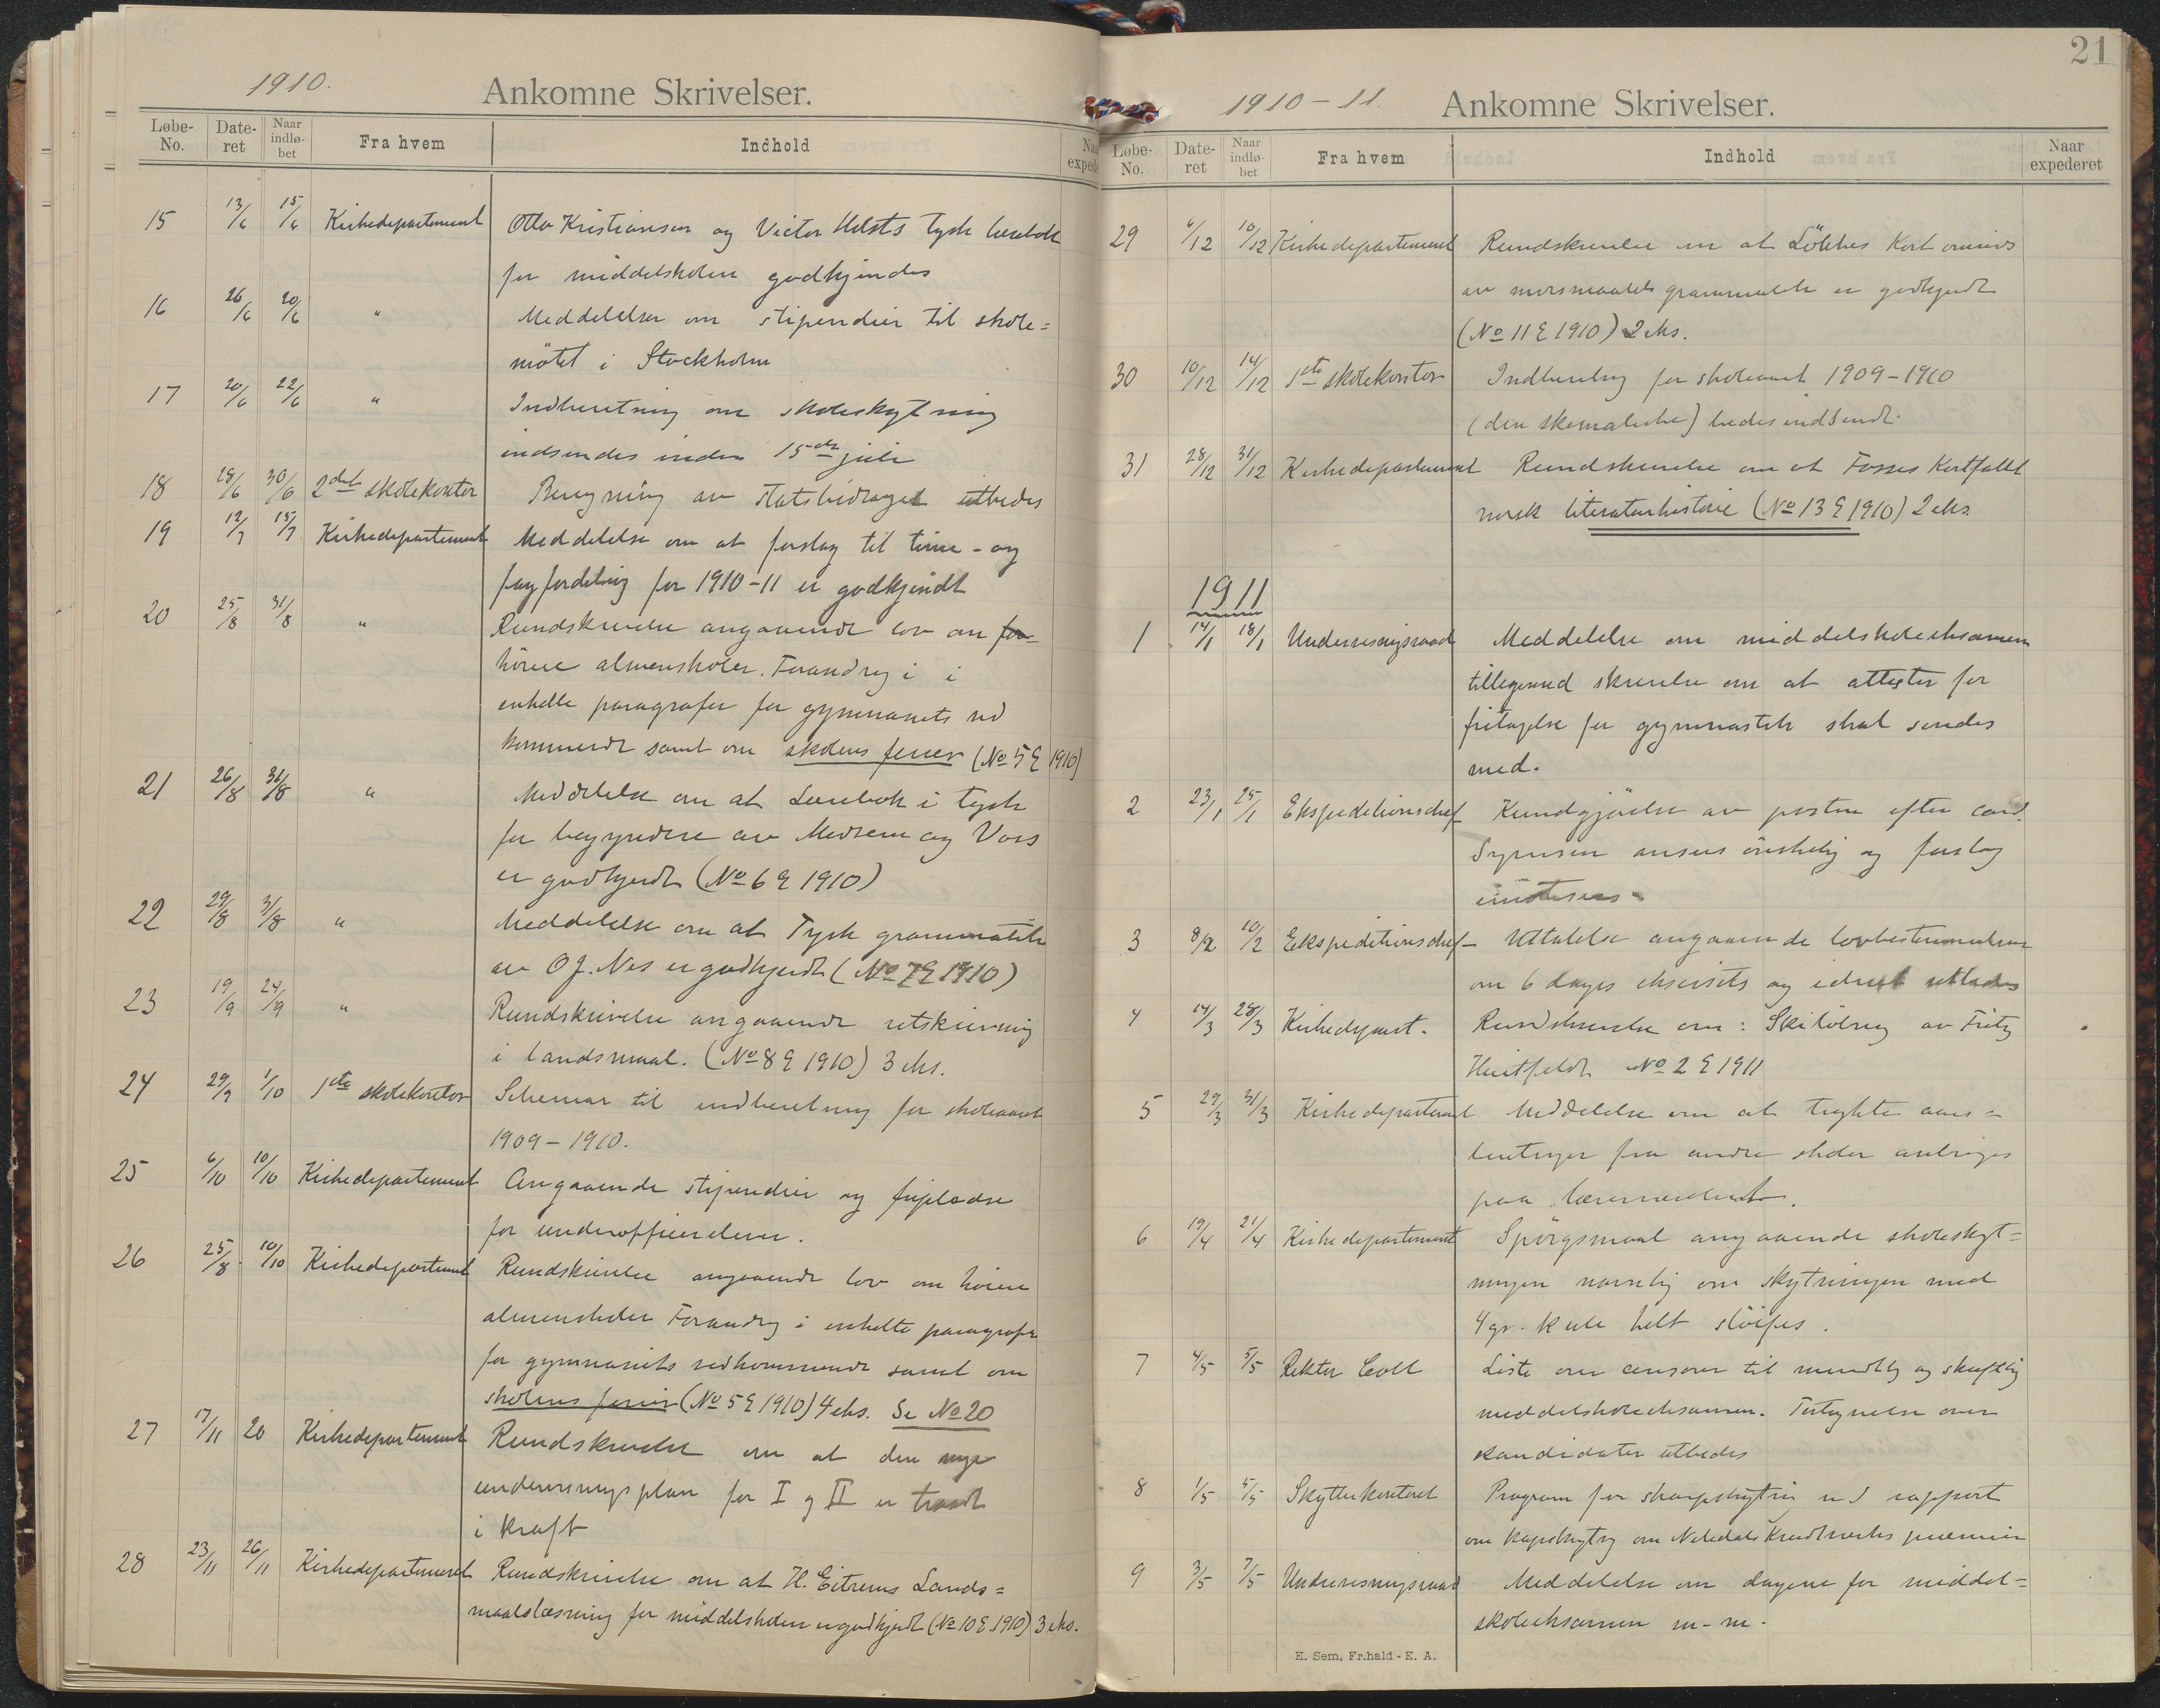 1910.
Ankomne Skrivelser.
Løbe-No. Date-ret Naar indlø-bet Fra hvem Indhold Naar expede
15 13/6 15/6 Kirkedepartement Otto Kristiansen og Victor Helsts tysk lærebok
for middelskolen godkjendes
16 26/6 20/6 " Meddelelse om stipendier til skole=
mötet i Stockholm
17 20/6 22/6 " Indberetning om skoleskytning
indsendes inden 15de juli
18 28/6 30/6 2det skolekontor Beregning av statsbidraget utbedes
19 12/7 15/7 Kirkedepartement Meddelelse om at forslag til time- og
fagfordeling for 1910-11 er godkjendt
20 25/8 31/8 " Rundskrivelse angaaende lov om for-
höiere almenskoler. Forandrg i i
enkelte paragrafer for gymnasiets ved
kommende samt om skolens ferier (No 5 E 1910)
21 26/8 31/8 " Meddelelse om at Lærebok i tysk
for begyndere av Medsem og Voss
er godkjendt (No 6 E 1910)
22 29/8 31/8 " Meddelelse om at Tysk grammatik
av O J. Nes er godkjendt (No 7 E 1910)
23 19/9 24/9 " Rundskrivelse angaaende retskrivning
i landsmaal. (No 8 E 1910) 3 eks.
24 29/9 1/10 1ste skolekontor Schemar til indberetning for skoleaaret
1909-1910.
25 6/10 10/10 Kirkedepartement Angaaende stipendier og fripladse
for underofficerelever.
26 25/8 10/10 Kirkedepartement Rundskrivelse angaaende lov om höiere
almenskoler Forandrg i enkelte paragrafer
for gymnasiets vedkommende samt om
skolens ferier (No 5 E 1910) 4 eks. Se No 20
27 17/11 20 Kirkedepartement Rundskrivelse om at den nye
undervisningsplan for I og II er traadt
i kraft
28 23/11 26/11 Kirkedepartement Rundskrivelse om at H. Eitrems Lands=
maalslæsning for middelskolen er godkjendt (No 10 E 1910) 3 eks.
21
1910-11.
Ankomne Skrivelser.
Løbe-No. Date-ret Naar indlø-bet Fra hvem Indhold Naar expederet
29 6/12 10/12 Kirkedepartement Rundskrivelse om at Lökkes Kort omrids
av morsmaalets grammatik er godkjendt
(No 11 E 1910) 2 eks.
30 10/12 14/12 1ste skolekontor Indberetng for skoleaaret 1909-1910
(den skematiske) bedes indsendt.
31 28/12 31/12 Kirkedepartement Rundskrivelse om at Fosses Kortfattet
norsk literaturhistorie (No 13 E 1910) 2 eks.
1911
1 14/1 18/1 Undervisningsraad Meddelelse om middelskoleeksamen
tillegemed skrivelse om at attester for
fritagelse for gymnastik skal sendes
med.
2 23/1 25/1 Ekspeditionschef Kundgjörelse av posten efter cand.
ansees önskelig og forslag
3 8/2 10/2 Eekspeditionschef Uttalelse angaaende lovbestemmelsen
om 6 dages eksersits og idræt utbedes
4 14/3 28/3 Kirkedepart. Rundskrivelse om: Skilöbng av Fritz
Huitfeldt No 2 E 1911
5 29/3 31/3 Kirkedepartement Meddelelse om at trykte aars=
beretnger fra andre skoler anbriges
paa læreværelset.
6 19/4 21/4 Kirkedepartement Spörgsmaal angaaende skoleskyt=
ningen navnlig om skytningen med
4 gr. kule helt slöifes.
7 4/5 5/5 Rektor Coll Liste over censorer til mundtlig og skriftlig
middelskoleeksamen. Fortegnelse over
kandidater utbedes
8 1/5 5/5 Skytterkontoret Program for skarpskytning ved rapport
om kapskytng om Nitedals Krudtverks præmier
9 3/5 7/5 Undervisningsraad Meddelelse om dagene for middel=
skoleeksamen m-m.
E. Sem, Fr.hald - E. A.